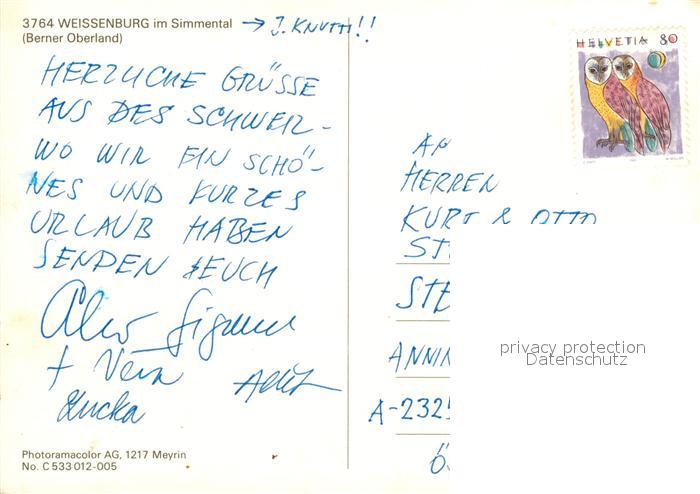 3764 WEISSENBURG im Simmental → J. KNUTTI!!
(Berner Oberland)
HERZLICHE GRÜSSE
AUS DES SCHWEIZ-
WO WIR EIN SCHÖ-
NES UND KURZES
URLAUB HABEN
SENDEN EUCH
+ Vera
Zucka
Photoramacolor AG, 1217 Meyrin
No. C 533 012-005
HELVETIA 80
AN
HERREN
KURT & OTTO
ST
STE
ANNI
A-232
Ö
privacy protection
Datenschutz